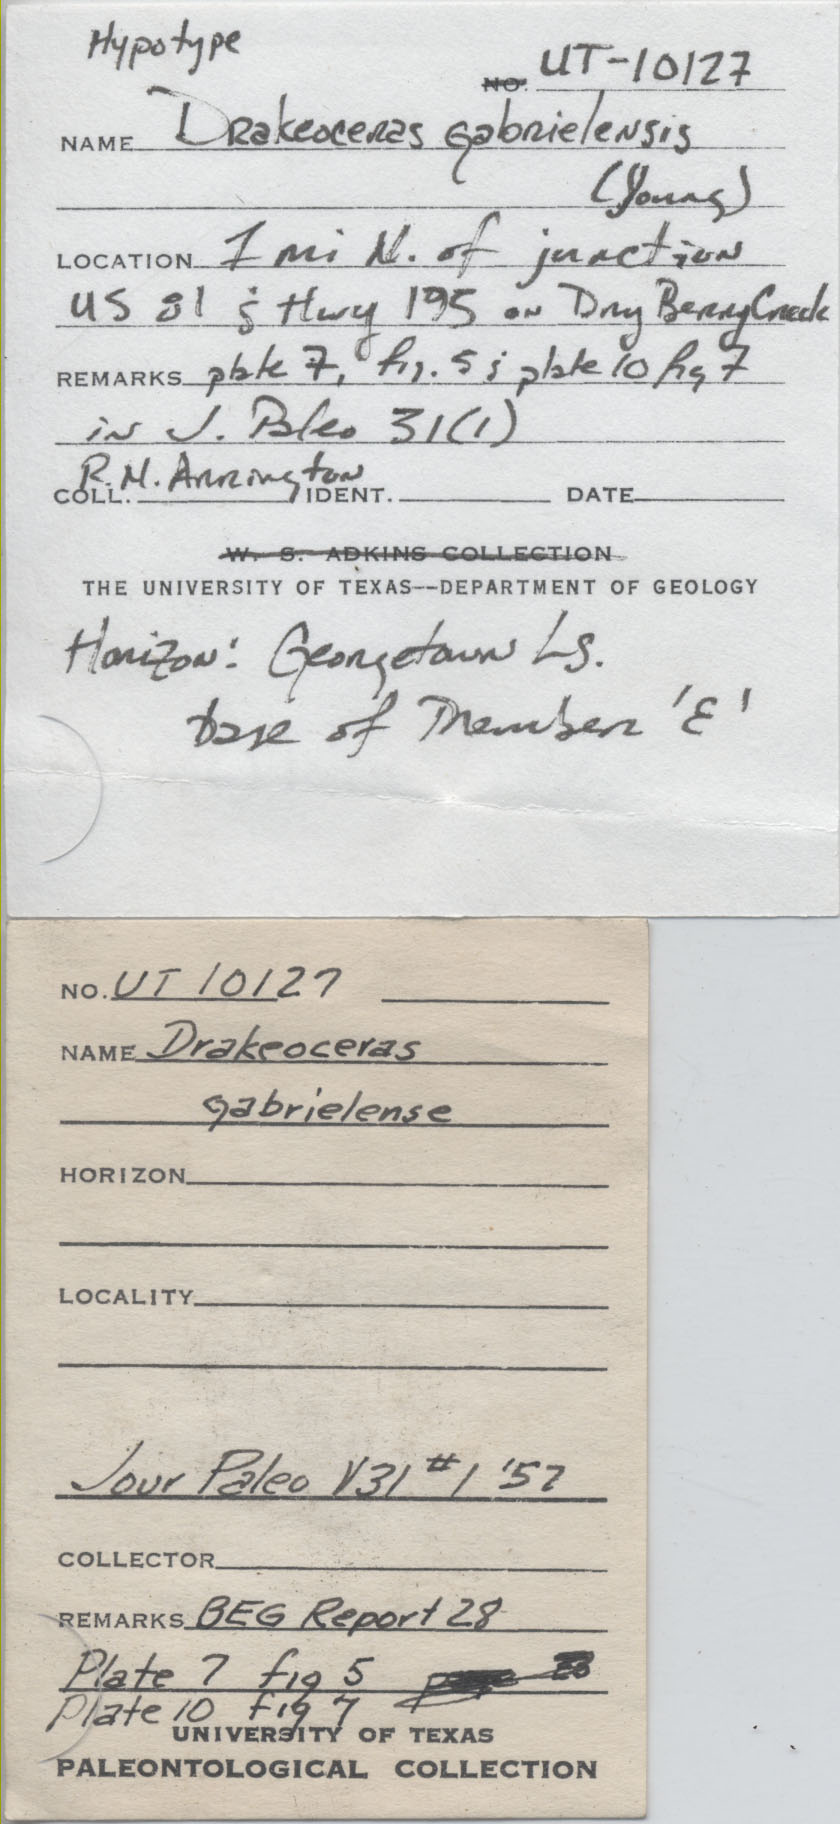 Hypotype
NO. UT-10127
NAME Drakeoceras gabrielensis
(Young)
LOCATION 1 mi N. of junction
US 81 & Hwy 195 on Dry Berry Creek
REMARKS plate 7, fig. 5; plate 10 fig 7
in J. Paleo 31(1)
R.M. Arrington
COLL. IDENT. DATE
W. S. ADKINS COLLECTION
THE UNIVERSITY OF TEXAS--DEPARTMENT OF GEOLOGY
Horizon: Georgetown Ls.
base of Member 'E'
NO. UT 10127
NAME Drakeoceras
gabrielense
HORIZON
LOCALITY
Jour Paleo V31 #1 '57
COLLECTOR
REMARKS BEG Report 28
Plate 7 fig 5
Plate 10 fig 7
UNIVERSITY OF TEXAS
PALEONTOLOGICAL COLLECTION